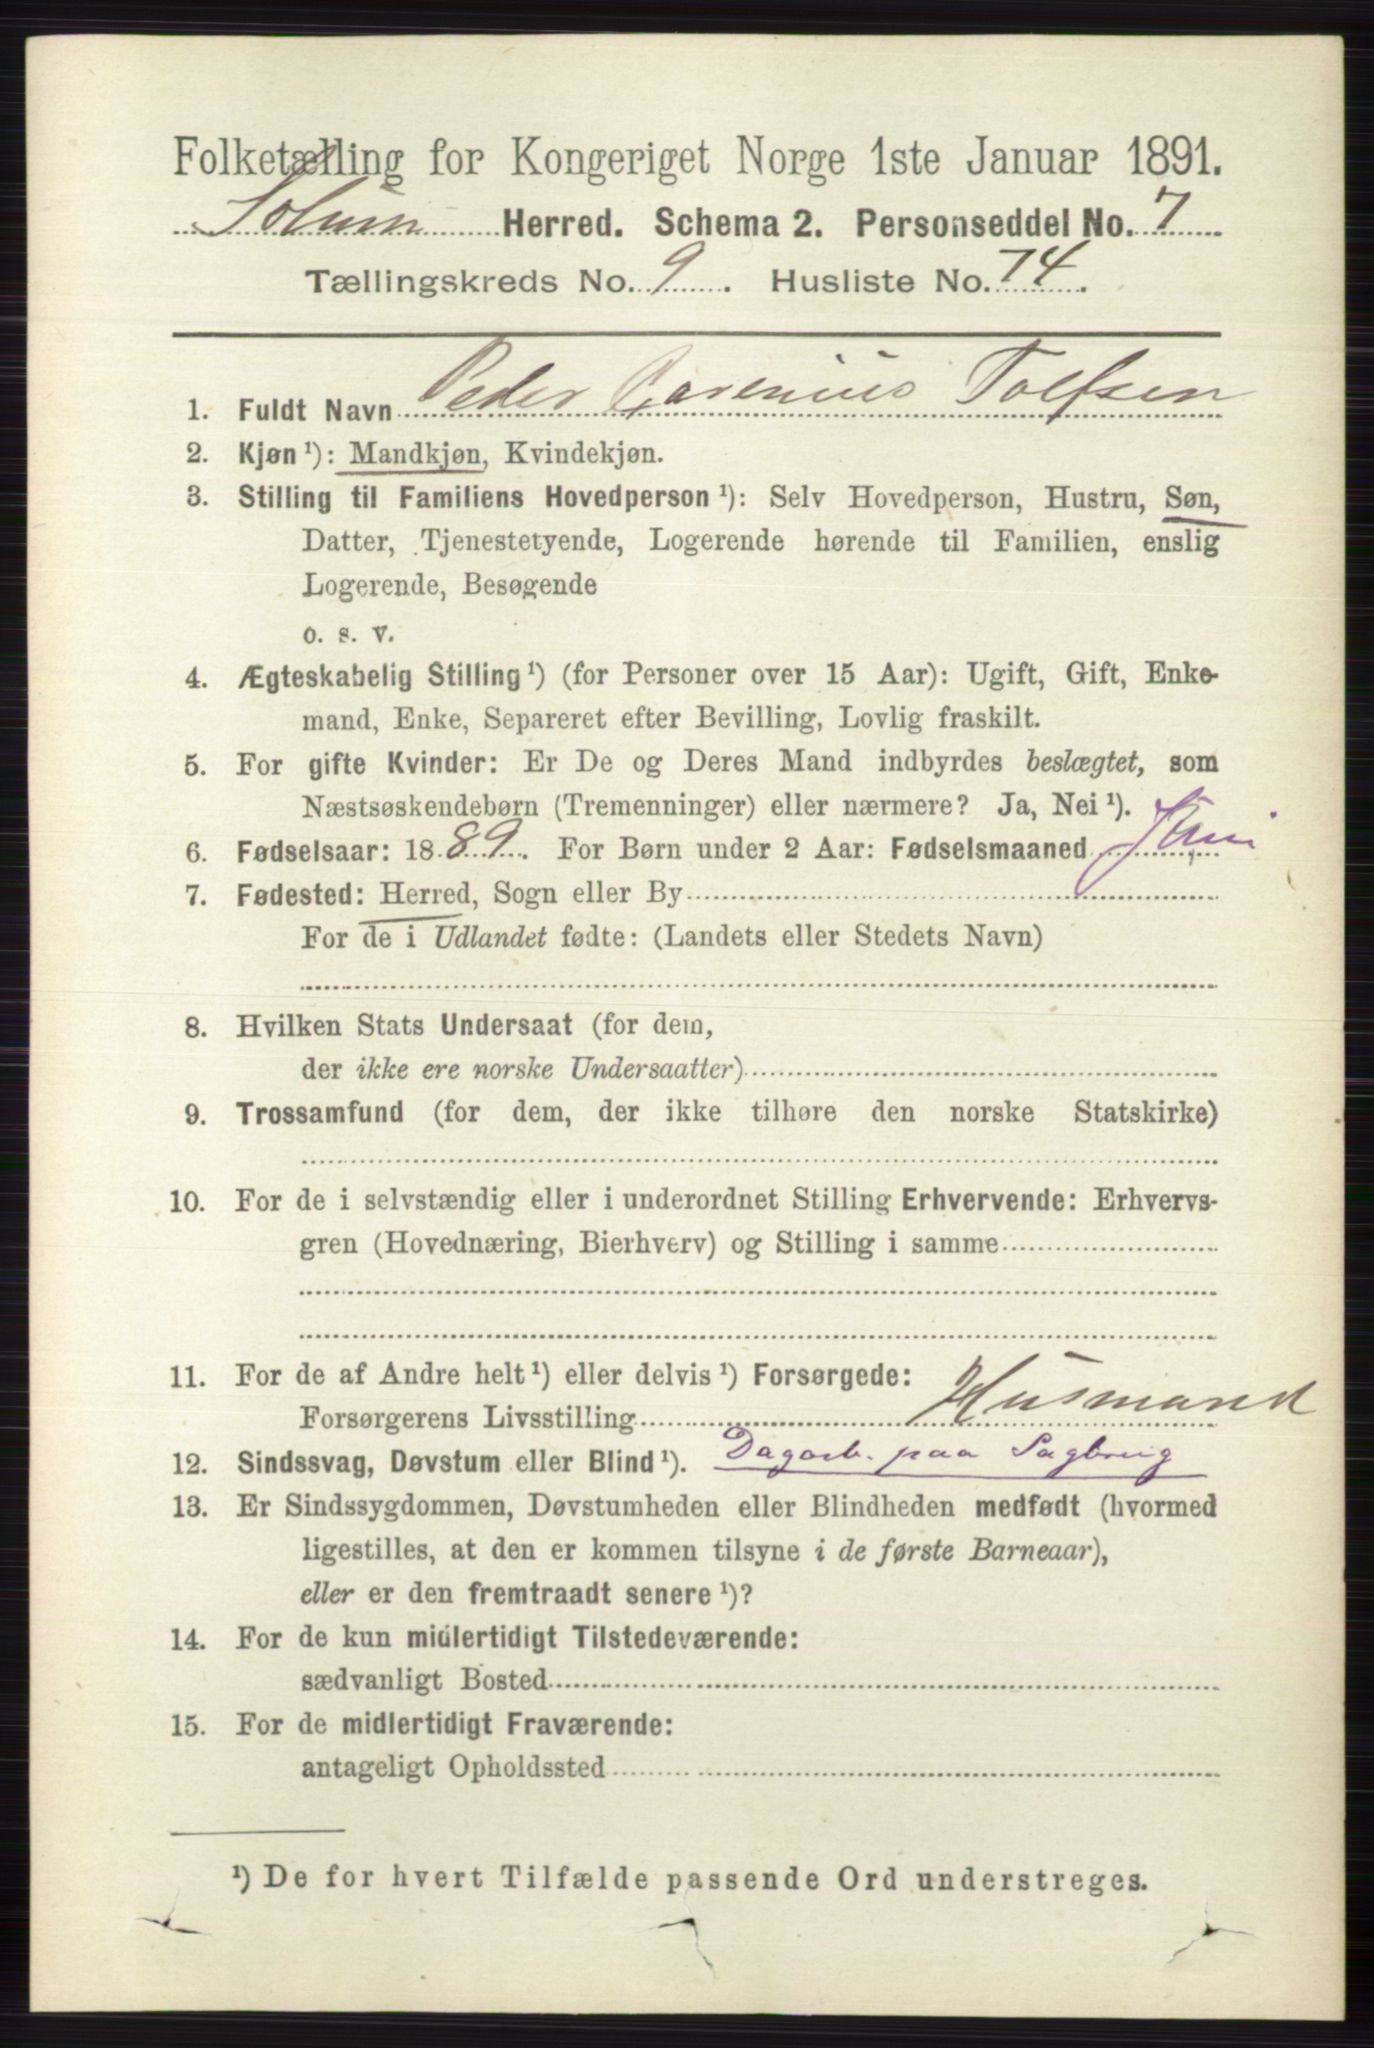 Folketælling for Kongeriget Norge 1ste Januar 1891.
Solum Herred. Schema 2. Personseddel No. 7
Tællingskreds No. 9. Husliste No. 74.
1. Fuldt Navn Peder Carenius Tolfsen
2. Kjøn ¹): Mandkjøn, Kvindekjøn.
3. Stilling til Familiens Hovedperson ¹): Selv Hovedperson, Hustru, Søn,
Datter, Tjenestetyende, Logerende hørende til Familien, enslig
Logerende, Besøgende
o. s. v.
4. Ægteskabelig Stilling ¹) (for Personer over 15 Aar): Ugift, Gift, Enke-
mand, Enke, Separeret efter Bevilling, Lovlig fraskilt.
5. For gifte Kvinder: Er De og Deres Mand indbyrdes beslægtet, som
Næstsøskendebørn (Tremenninger) eller nærmere? Ja, Nei ¹).
6. Fødselsaar: 1889. For Børn under 2 Aar: Fødselsmaaned Juni
7. Fødested: Herred, Sogn eller By
For de i Udlandet fødte: (Landets eller Stedets Navn)
8. Hvilken Stats Undersaat (for dem,
der ikke ere norske Undersaatter)
9. Trossamfund (for dem, der ikke tilhøre den norske Statskirke)
10. For de i selvstændig eller i underordnet Stilling Erhvervende: Erhvervs-
gren (Hovednæring, Bierhverv) og Stilling i samme
11. For de af Andre helt ¹) eller delvis ¹) Forsørgede:
Forsørgerens Livsstilling Husmand
12. Sindssvag, Døvstum eller Blind ¹). Dagarb. paa Sagbrug
13. Er Sindssygdommen, Døvstumheden eller Blindheden medfødt (hvormed
ligestilles, at den er kommen tilsyne i de første Barneaar),
eller er den fremtraadt senere ¹)?
14. For de kun midlertidigt Tilstedeværende:
sædvanligt Bosted
15. For de midlertidigt Fraværende:
antageligt Opholdssted
¹) De for hvert Tilfælde passende Ord understreges.